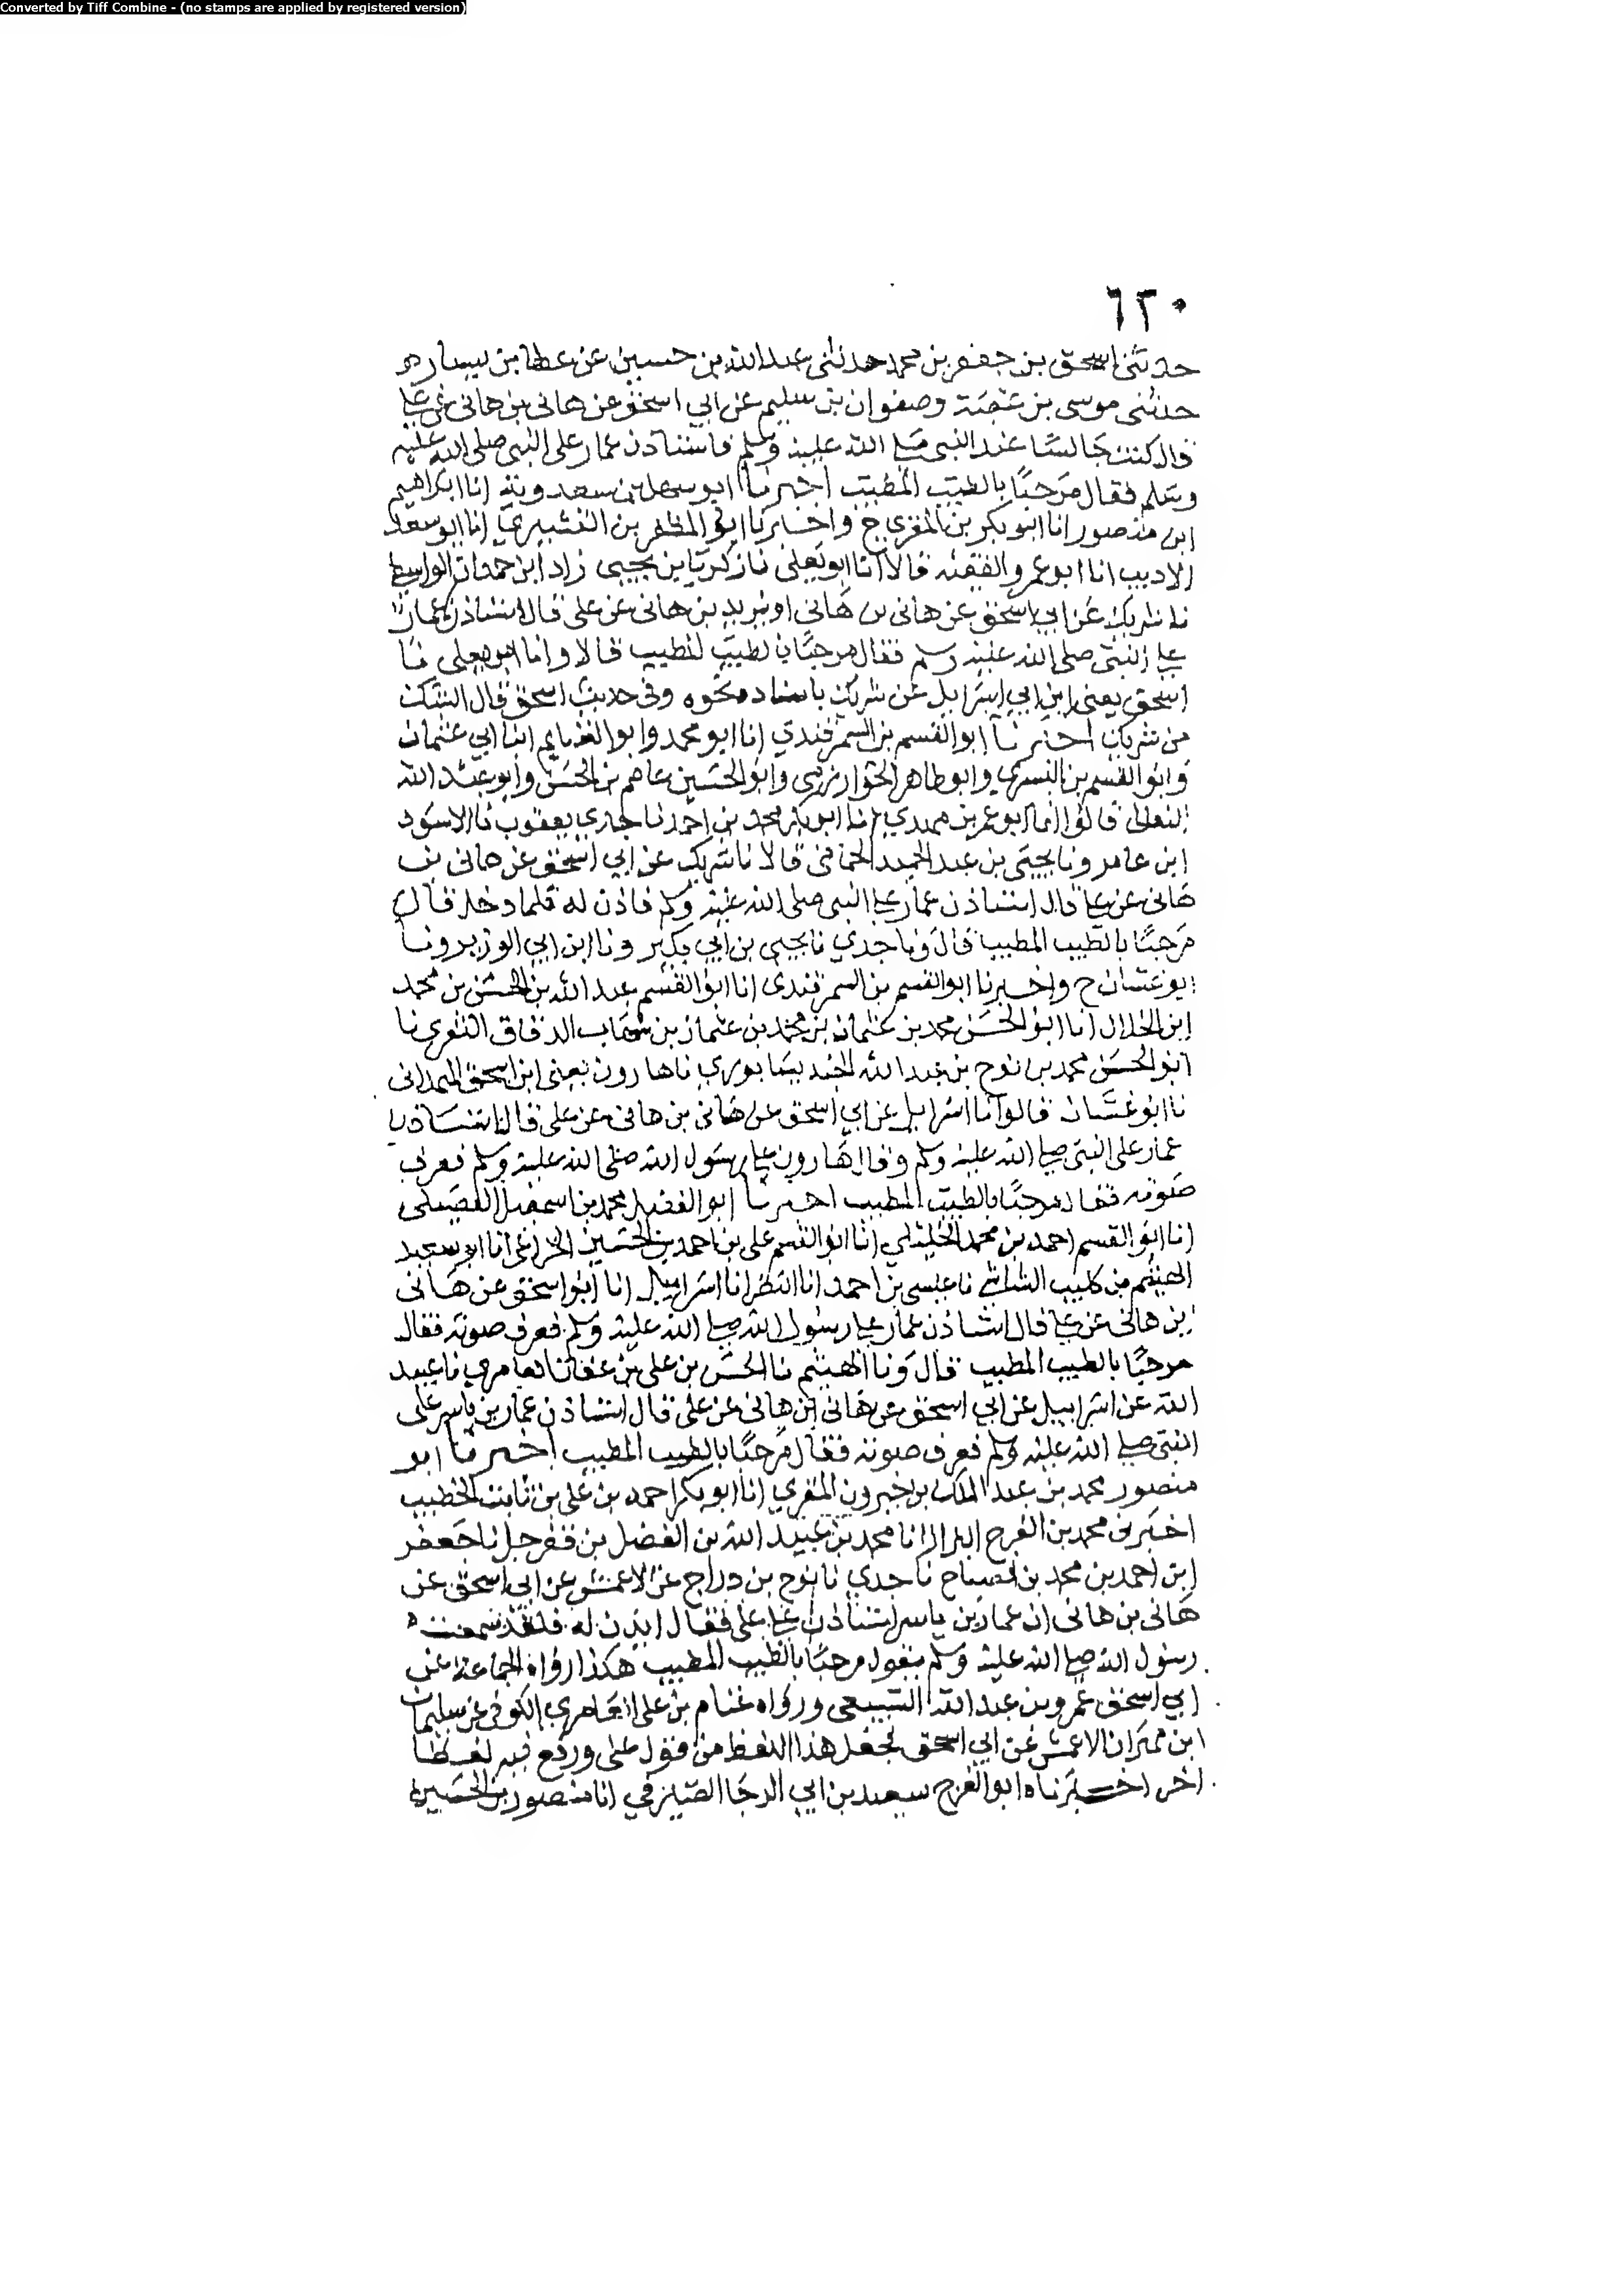 Converted by Tiff Combine - (no stamps are applied by registered version)
٦٢٠
حدثني اسحق بن جعفر بن محمد حدثني عبد الله بن حسين عن عطا بن يسار ه
حدثني موسى بن عقبة وصفوان بن سليم عن ابي اسحق عن هانى بن هانى عن علي
قال كنت جالسًا عند النبي صلى الله عليه وسلم فاستاذن عمار على النبي صلى الله عليه
وسلم فقال مرحبًا بالطيب المطيب اخبرنا ابو سهل بن سعدويه انا ابراهيم
ابن منصور انا ابو بكر بن المقرى ح واخبرنا ابو المظفر بن القشيري انا ابو سعد
الاديب انا ابو عمرو الفقيه قالا انا ابو يعلى نا زكريا بن يحيى زاد ابن حمدان الواسطي
نا شريك عن ابي اسحق عن هانى بن هاني او يزيد بن هانى عن على قال استاذن عمار
على النبي صلى الله عليه وسلم فقال مرحبًا بالطيب المطيب قالا وانا ابو يعلى نا
اسحق يعني ابن ابي اسرايل عن شريك باسناده نحوه وفي حديث اسحق قال الشك
من شريك اخبرنا ابو القسم بن السمرقندي انا ابو محمد وابو الغنايم ابنا ابي عثمان
وابو القسم بن البسري وابو طاهر الخوارزمي وابو الحسين عاصم بن الحسن وابو عبد الله
النعالى قالوا انا ابو عمر بن مهدي انا ابو بكر محمد بن احمد نا جدي يعقوب نا الاسود
ابن عامر ونا يحيى بن عبد الحميد الحماني قالا نا شريك عن ابي اسحق عن هانى بن
هانى عن علي قال استاذن عمار على النبي صلى الله عليه وسلم فاذن له فلما دخل قال
مرحبًا بالطيب المطيب قال ونا جدي نا يحيى بن ابي بكير ونا ابن ابي الوزير ونا
ابو غسان ح واخبرنا ابو القسم بن السمرقندى انا ابو القسم عبد الله بن الحسن بن محمد
ابن الخلال انا ابو الحسن محمد بن عثمان بن محمد بن عثمان بن شهاب الدقاق النفري نا
ابو الحسن محمد بن نوح بن عبد الله الجنديسابوري نا هارون يعنى ابن اسحق الهمدانى
نا ابو غسان قالوا نا اسرايل عن ابي اسحق عن هانى بن هانى عن على قال استاذن
عمار على النبي صلى الله عليه وسلم وقال هارون على رسول الله صلى الله عليه وسلم فعرف
صوته فقال مرحبًا بالطيب المطيب اخبرنا ابو الفضل محمد بن اسمعيل الفضيلى
انا ابو القسم احمد بن محمد الخليلي انا ابو القسم على بن احمد بن الحسين الخزاعى انا ابو سعيد
الهيثم بن كليب الشاشي نا عيسى بن احمد انا النضر انا اسراييل انا ابو اسحق عن هانى
ابن هانى عن علي قال استاذن عمار على رسول الله صلى الله عليه وسلم فعرف صوته فقال
مرحبًا بالطيب المطيب قال ونا الهيثم نا الحسن بن على بن عفان العامري نا عبيد
الله عن اسراييل عن ابي اسحق عن هانى ابن هانى عن على قال استاذن عمار بن ياسر على
النبي صلى الله عليه وسلم فعرف صوته فقال مرحبًا بالطيب المطيب اخبرنا ابو
منصور محمد بن عبد الملك بن خيرون المقري انا ابو بكر احمد بن على بن ثابت الخطيب
اخبرنى محمد بن الفرج البزاز انا محمد بن عبيد الله بن الفضل بن قفرجل نا جعفر
ابن احمد بن محمد بن الصباح نا جدي نا نوح بن دراج عن الاعمش عن ابي اسحق عن
هانى بن هانى ان عمار بن ياسر استاذن على على فقال ايذن له فلقد سمعت
رسول الله صلى الله عليه وسلم يقول مرحبًا بالطيب المطيب هكذا رواه الجماعة عن
ابي اسحق عمرو بن عبد الله السبيعى ورواه غنام بن على العامري الكوفى عن سليمان
ابن مهران الاعمش عن ابي اسحق فجعل هذا اللفظ من قول على ورفع فيه لفظًا
اخر اخبرناه ابو الفرج سعيد بن ابي الرجا الصيرفي انا منصور بن الحسين